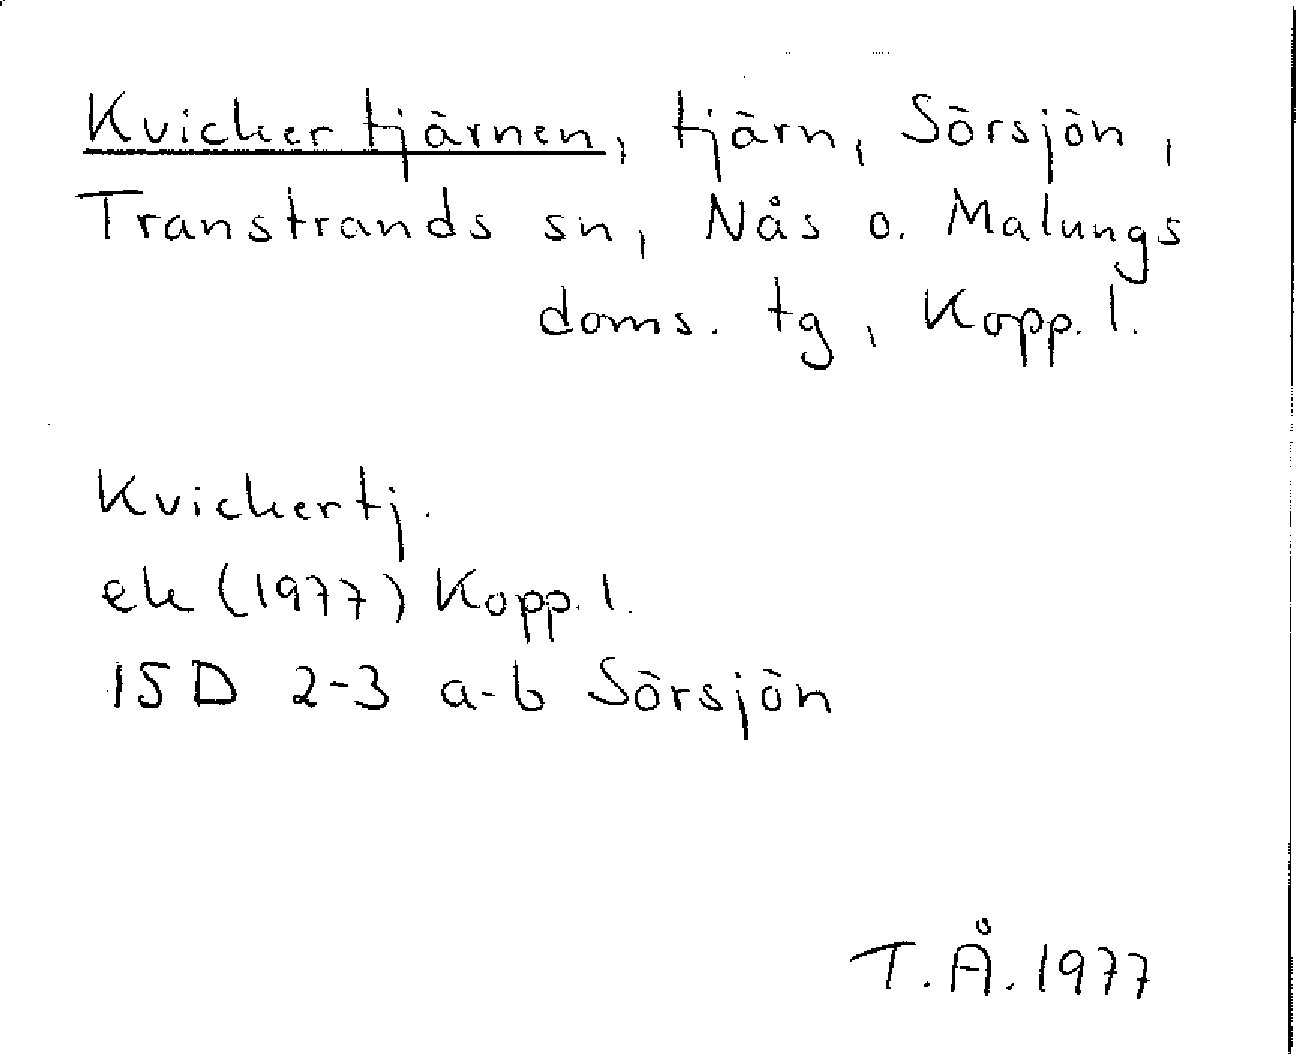 Kvickertjärnen, tjärn, Sörsjön,
Transtrands sn, Nås o. Malungs
doms. tg, Kopp. l.
Kvickertj.
ek (1977) Kopp. l.
15D 2-3 a-b Sörsjön
T.Å. 1977